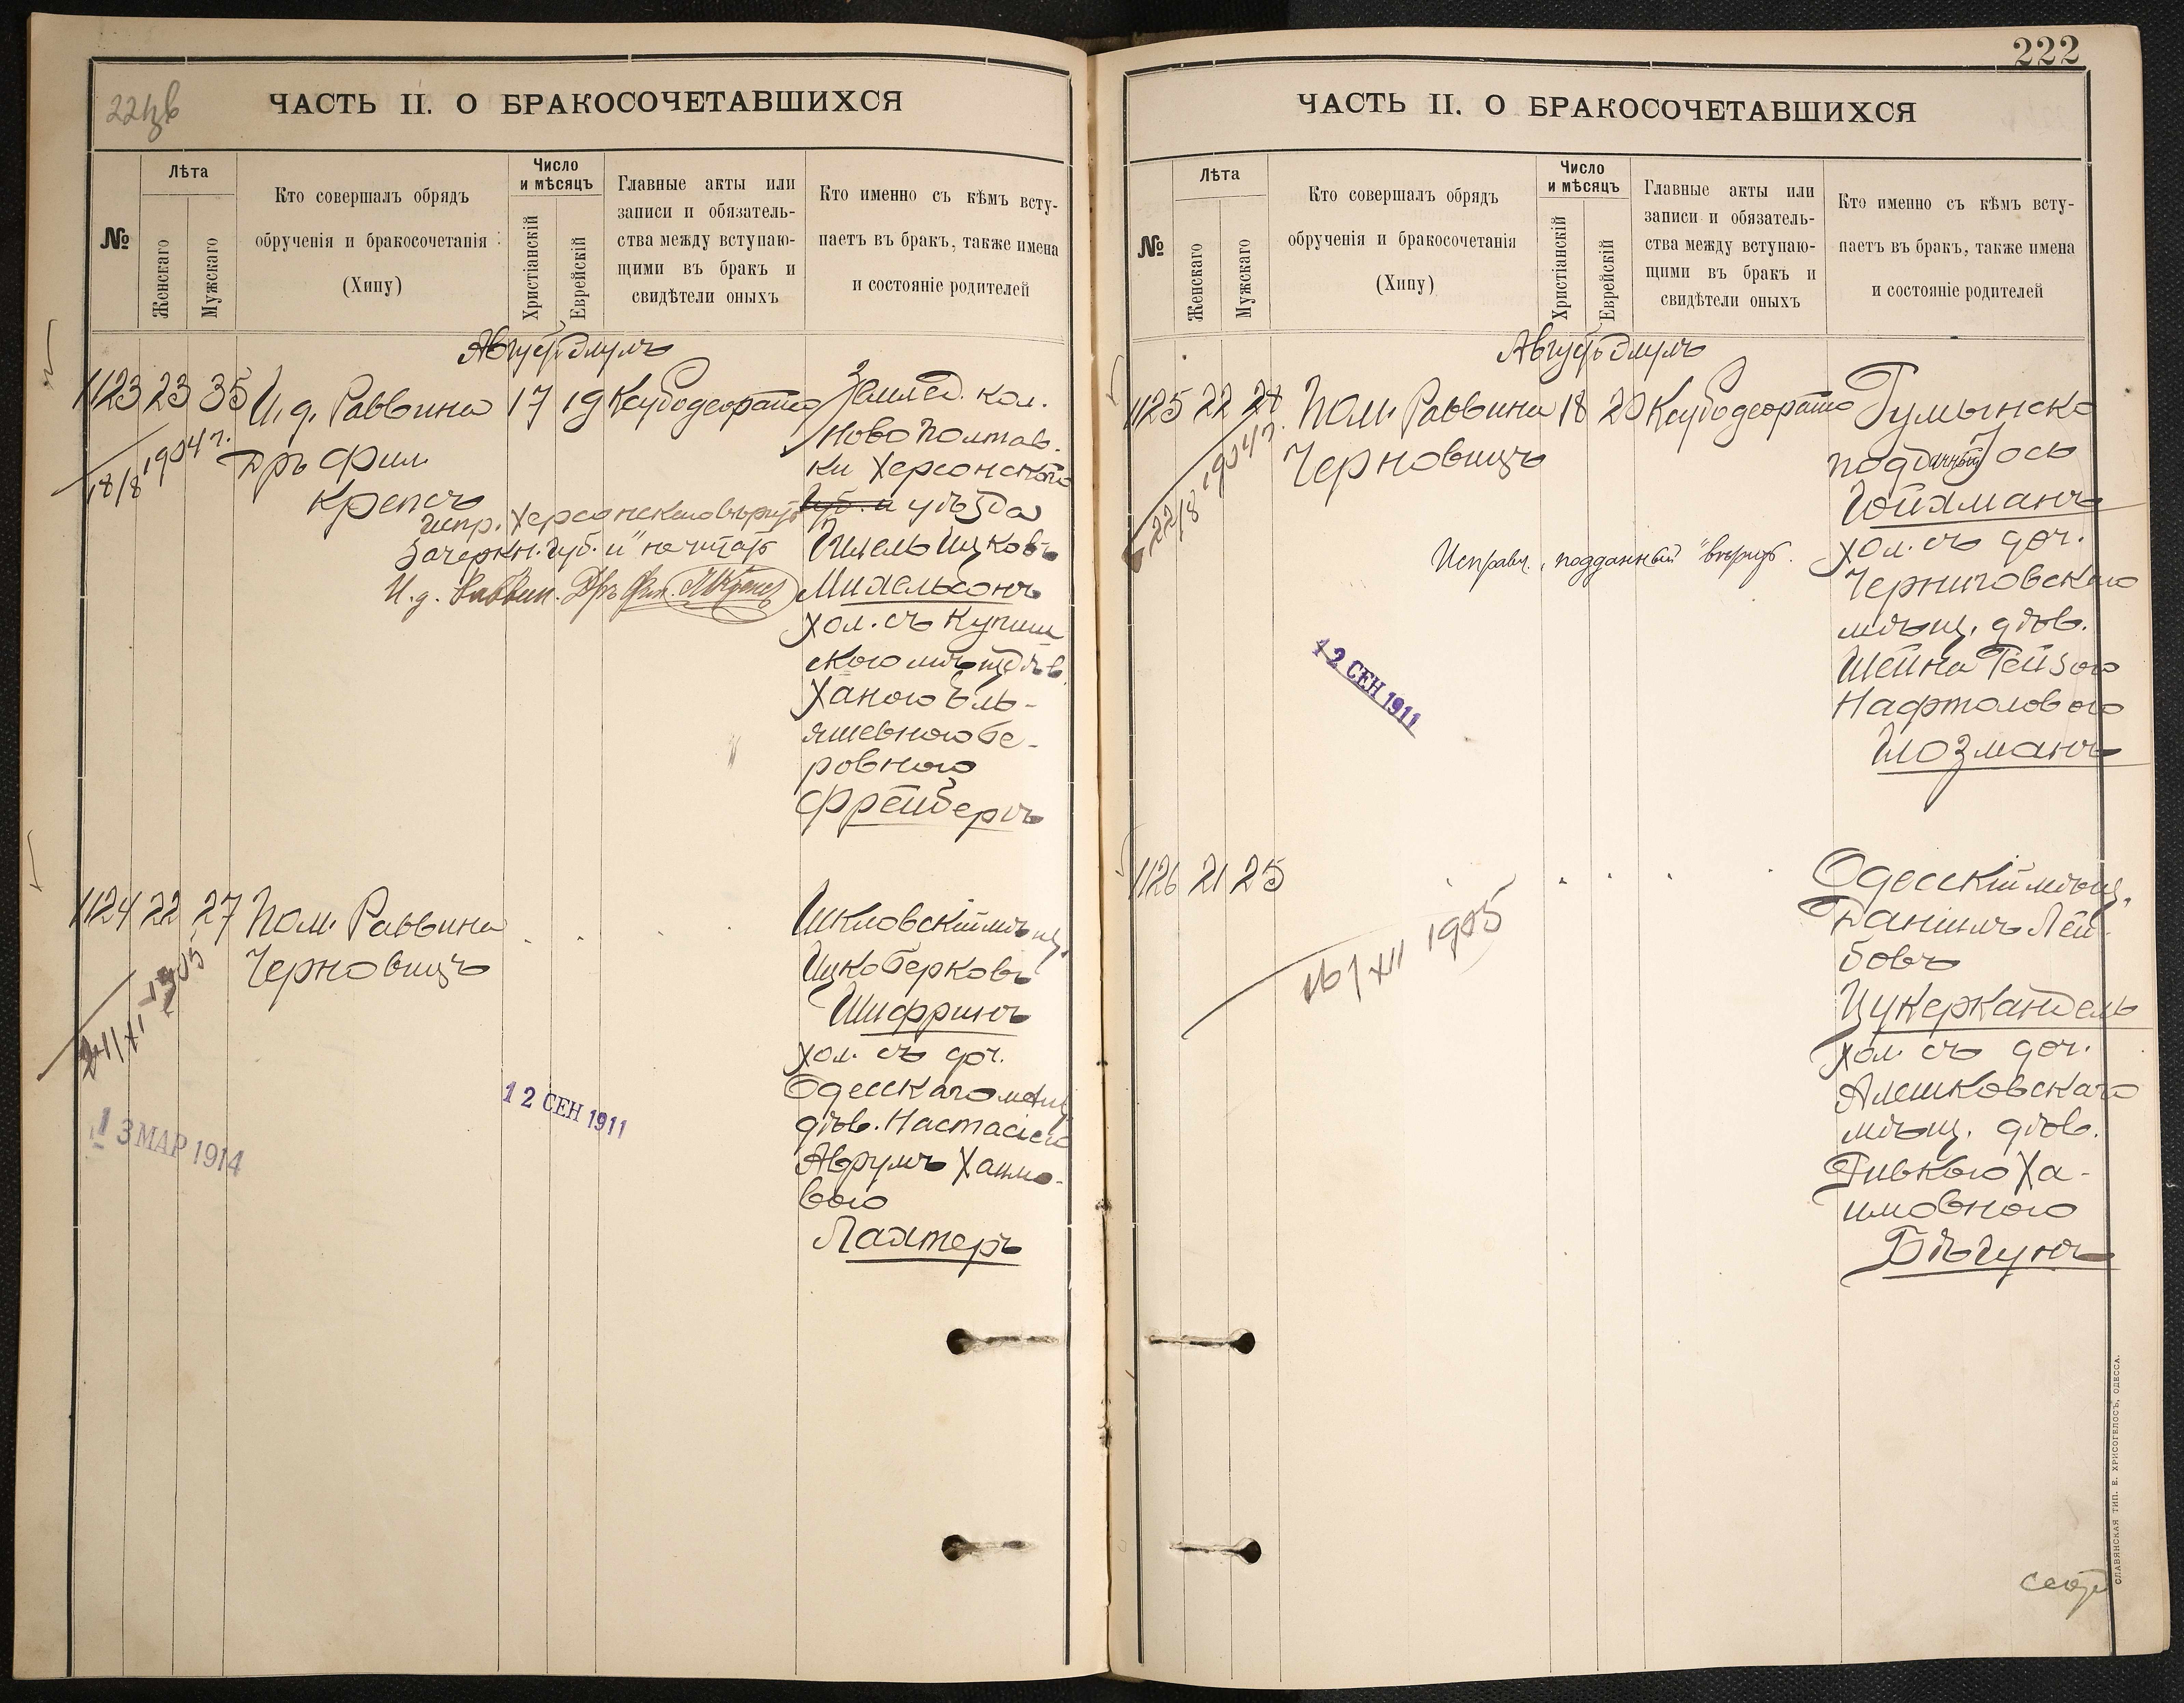 ЧАСТЬ II. О БРАКОСОЧЕТАВШИХСЯ
№
Лѣта
Женскаго
Мужскаго
Кто совершалъ обрядъ
обрученія и бракосочетанія
(Хипу)
Число
и мѣсяцъ
Христіанскій
Еврейскій
Главные акты или
записи и обязатель-
ства между вступаю-
щими въ бракъ и
свидѣтели оныхъ
Кто именно съ кѣмъ всту-
паетъ въ бракъ, также имена
и состояніе родителей
Августъ Элулъ
1123 23 35 И. д. Раввина 17 19
18/8 1904 г.
Дръ Фил.
Крепсъ
Землед. кол.
Ново Полтав-
ки Херсонского
Губ. и уѣзда
Гилель Ицковъ
Михельсонъ
хол. съ Купиш
ского мѣщ. дѣв.
Ханою Эль-
яшевною Бе-
ровною
Фрейбергъ
Испр. Херсонского вѣрить
Зачеркн. "Губ. и" не читать
И. д. Раввин. Дръ Фил. Крепсъ
1124 22 27 Пом. Раввина
Черновицъ
1905
12 СЕН 1911
13 МАР 1914
Шкловскій мѣщ.
Ицко Берковъ
Шифринъ
хол. съ доч.
Одесскаго мѣщ
дѣв. Настасіею
Аврумъ Хаимо-
вою
Лахтеръ
222
ЧАСТЬ II. О БРАКОСОЧЕТАВШИХСЯ
№
Лѣта
Женскаго
Мужскаго
Кто совершалъ обрядъ
обрученія и бракосочетанія
(Хипу)
Число
и мѣсяцъ
Христіанскій
Еврейскій
Главные акты или
записи и обязатель-
ства между вступаю-
щими въ бракъ и
свидѣтели оныхъ
Кто именно съ кѣмъ всту-
паетъ въ бракъ, также имена
и состояніе родителей
Августъ Элулъ
1125 22 28 Пом. Раввина 18 20
22/8 1904 г.
Черновицъ
Румынско
подданный Іось
Гойхманъ
хол. съ доч.
Черниговскаго
мѣщ. дѣв.
Шейна Рейзою
Нафтоловою
Глозманъ
Исправл. "подданный" вѣрить.
12 СЕН 1911
1126 21 25
16/XII 1905
Одесскій мѣщ.
Даніилъ Лей-
бовъ
Цукеркандель
хол. съ доч.
Алешковскаго
мѣщ. дѣв.
Ривкою Ха-
имовною
Бѣгунъ
СЛАВЯНСКАЯ ТИП. Е. ХРИСОГЕЛОСЪ, ОДЕССА.